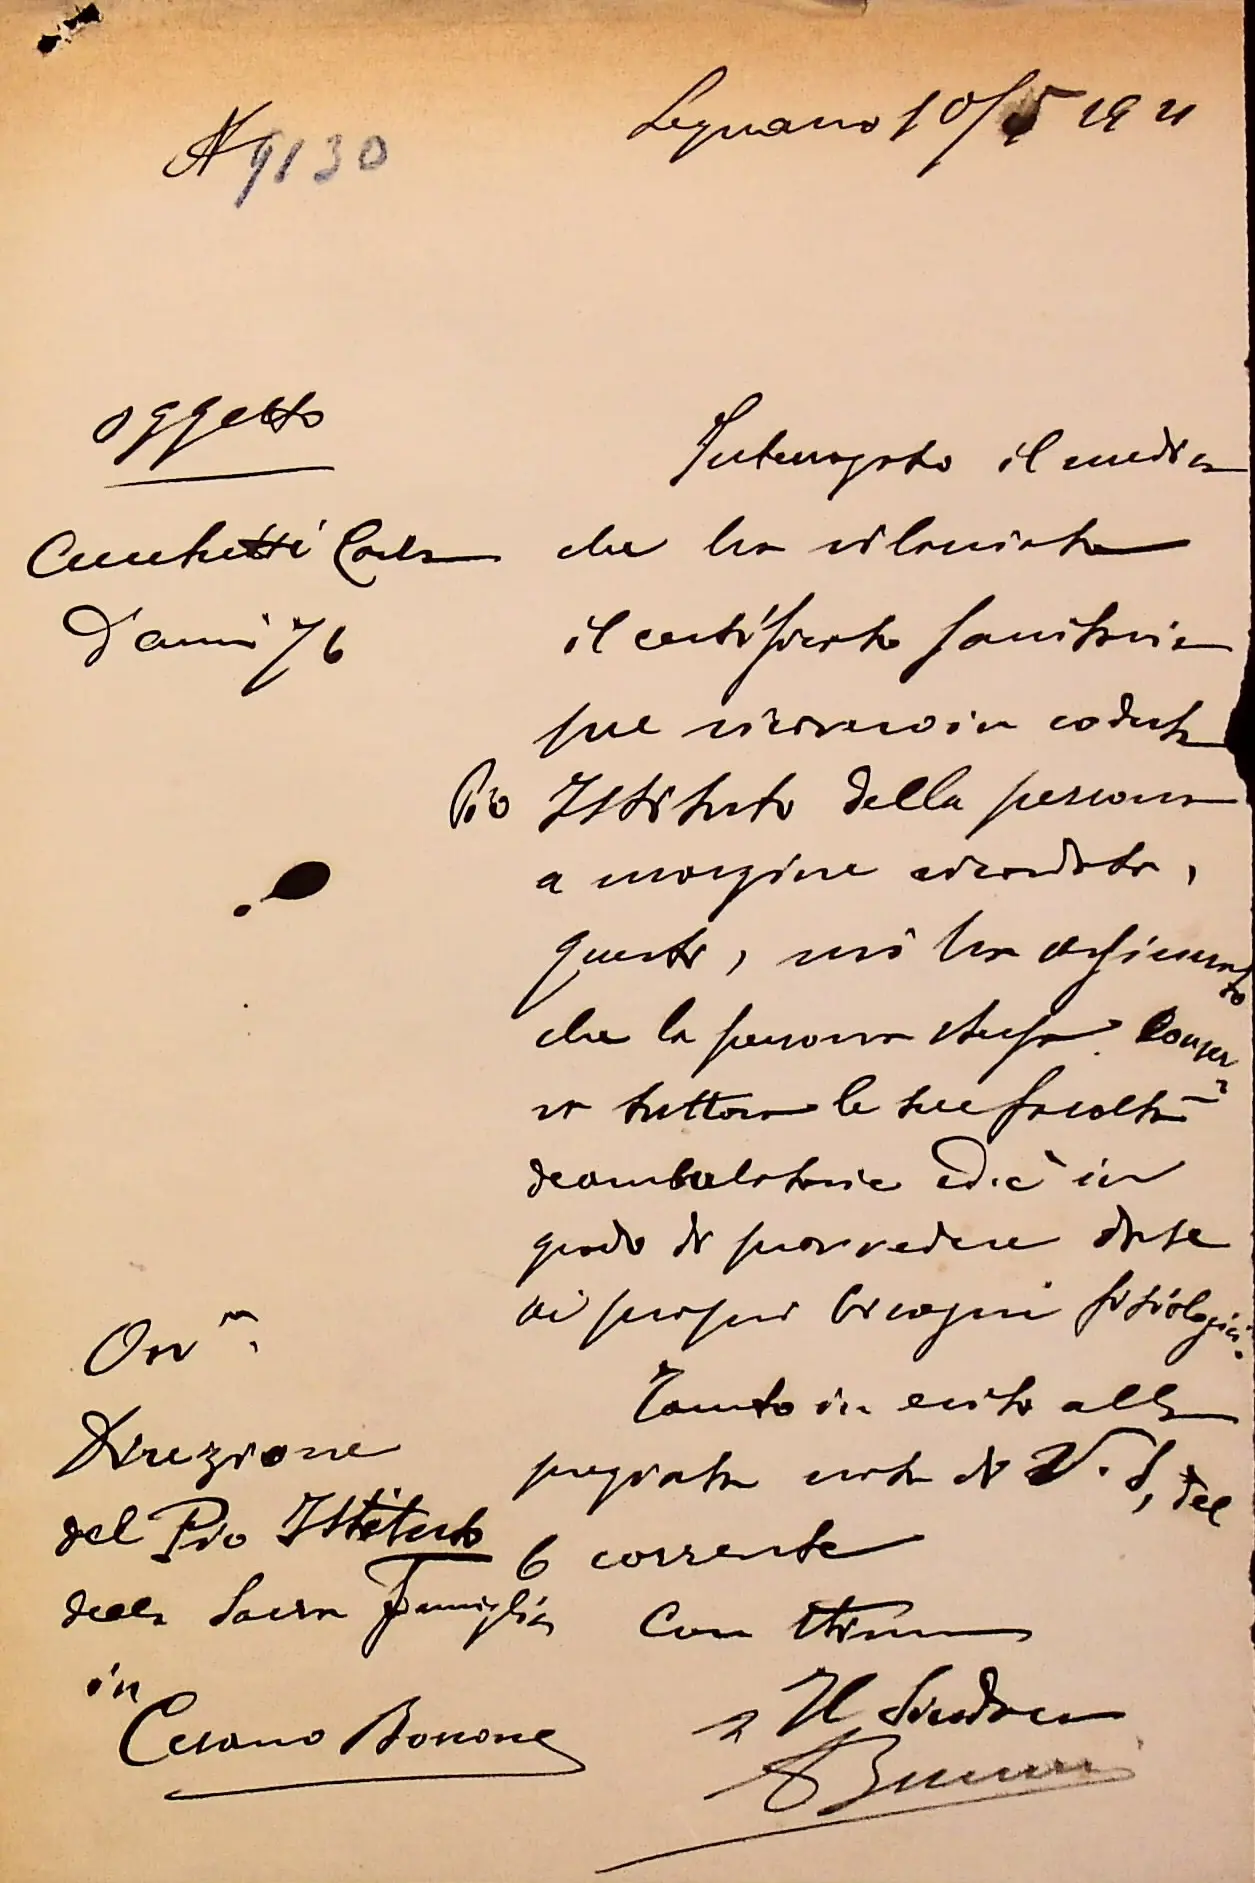 N 9130
Legnano 10/5 1921
oggetto
Cucchetti Carlo
D'anni 76
Interrogato il medico
che ha rilasciato
il certificato sanitario
pel ricovero in codesto
Pio Istituto della persona
a margine ricordata,
questi, mi ha affermato
che la persona stessa conser
va tuttora le sue facoltà
deambulatorie ed è in
grado di provvedere da se
ai propri bisogni fisiologici.
Tanto in esito alla
pregiata nota di V. S, del
6 corrente
Con stima
Il Sindaco
On.
Direzione
del Pio Istituto
della Sacra Famiglia
in
Cesano Boscone